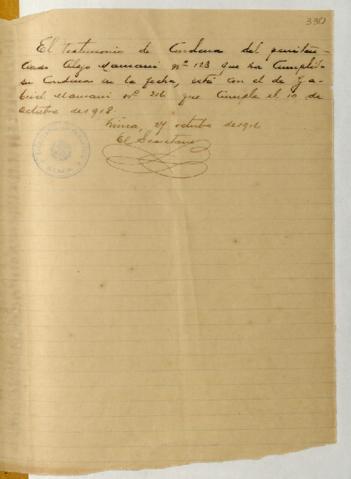 330
El testimonio de Condena del peniten-
ciado Alejo Mamani nº 123 que ha cumplido
su Condena en la fecha, está con el de Ga-
briel Mamani nº 216 que cumple el 10 de
octubre de 1918.
Lima, 27 octubre de 1916
El Secretario